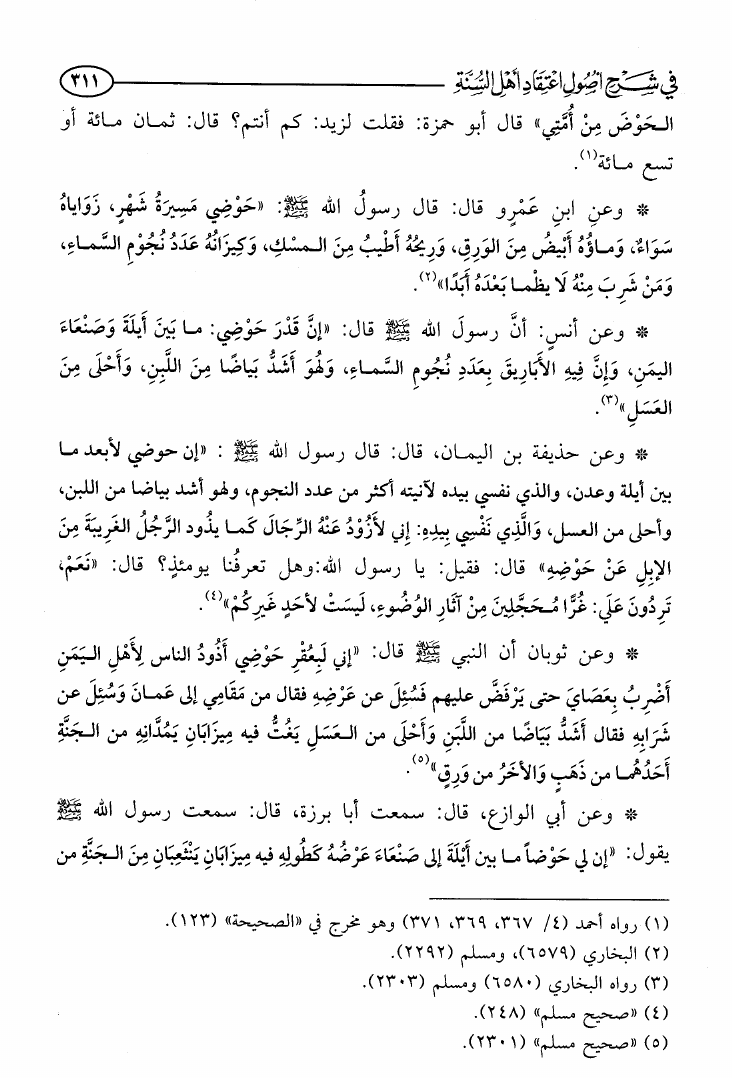 في شرح أصول اعتقاد أهل السنة
٣١١
الـحَوْضَ مِنْ أُمَّتِي» قال أبو حمزة: فقلت لزيد: كم أنتم؟ قال: ثمـان مـائة أو
تسع مـائة(١).
* وعنِ ابنِ عَمْرٍو قال: قال رسولُ الله ﷺ: «حَوْضِي مَسِيرَةُ شَهْرٍ، زَوَايَاهُ
سَوَاءٌ، وَمـاؤُهُ أَبْيَضُ مِنَ الوَرِقِ، وَرِيحُهُ أَطْيبُ مِنَ الـمسْكِ، وَكِيزَانُهُ عَدَدُ نُجُوْمِ السَّمـاءِ،
وَمَنْ شَرِبَ مِنْهُ لَا يظْمـا بَعْدَهُ أَبَدًا»(٢).
* وعن أنسٍ: أنَّ رسولَ الله ﷺ قال: «إنَّ قَدْرَ حَوْضِي: مـا بَيْنَ أَيلَةَ وَصَنْعَاءَ
اليمَنِ، وَإنَّ فِيهِ الأَبَارِيقَ بِعَدَدِ نُجُومِ السَّمـاءِ، وَلهُوَ أَشَدُّ بَيَاضًا مِنَ اللَّبِنِ، وَأَحْلَى مِنَ
العَسَلِ»(٣).
* وعن حذيفة بن اليمـان، قال: قال رسول الله ﷺ : «إن حوضي لأبعد مـا
بين أيلة وعدن، والذي نفسي بيده لآنيته أكثر من عدد النجوم، ولهو أشد بياضا من اللبن،
وأحلى من العسل، وَالَّذِي نَفْسِي بِيدِهِ: إني لأَزُوْدُ عَنْهُ الرِّجَالَ كَمـا يذُود الرَّجُلُ الغَرِيبَةَ مِنَ
الإبِلِ عَنْ حَوْضِهِ» قال: فقيل: يا رسول الله:وهل تعرفُنا يومئذٍ؟ قال: «نَعَمْ،
تَرِدُونَ عَلَي: غُرًّا مُـحَجَّلِينَ مِنْ آثَارِ الوُضُوءِ، لَيسَتْ لأحَدٍ غَيرِكُمْ»(٤).
* وعن ثوبان أن النبي ﷺ قال: «إني لَبِعُقْرِ حَوْضِي أَذُودُ الناس لِأَهْلِ الـيَمَنِ
أَضْرِبُ بِعَصَايَ حتى يَرْفَضَّ عليهم فَسُئِلَ عن عَرْضِهِ فقال من مَقَامِي إلى عَمـانَ وَسُئِلَ عن
شَرَابِهِ فقال أَشَدُّ بَيَاضًا من اللَّبَنِ وَأَحْلَى من الـعَسَلِ يَغُتُّ فيه مِيزَابَانِ يَمُدَّانِهِ من الـجَنَّةِ
أَحَدُهُمـا من ذَهَبٍ وَالأخَرُ من وَرِقٍ»(٥).
* وعن أبي الوازع، قال: سمعت أبا برزة، قال: سمعت رسول الله ﷺ
يقول: «إن لي حَوْضاً مـا بين أَيْلَةَ إلى صَنْعَاءَ عَرْضُهُ كَطُولِهِ فيه مِيزَابَانِ يَنْثَعِبَانِ مِنَ الـجَنَّةِ من
(١) رواه أحمد (٤/ ٣٦٧، ٣٦٩، ٣٧١) وهو مخرج في «الصحيحة» (١٢٣).
(٢) البخاري (٦٥٧٩)، ومسلم (٢٢٩٢).
(٣) رواه البخاري (٦٥٨٠) ومسلم (٢٣٠٣).
(٤) «صحيح مسلم» (٢٤٨).
(٥) «صحيح مسلم» (٢٣٠١).